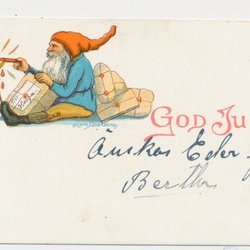 GOD JU
Önskas Eder
Bertha